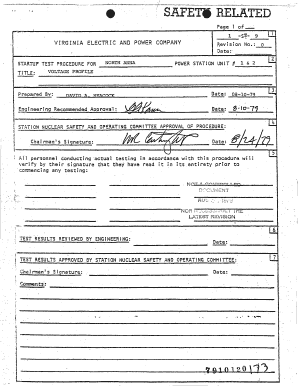 SAFETY RELATED
Page 1 of
VIRGINIA ELECTRIC AND POWER COMPANY
1
Revision No.: 0
Date:
STARTUP TEST PROCEDURE FOR NORTH ANNA POWER STATION UNIT # 1&2
2
TITLE: VOLTAGE PROFILE
3
Prepared By: DAVID A. HEACOCK Date: 08-10-79
Engineering Recommended Approval: Date: 8-10-79
4
STATION NUCLEAR SAFETY AND OPERATING COMMITTEE APPROVAL OF PROCEDURE:
Chairman's Signature: Date: 8/24/79
5
All personnel conducting actual testing in accordance with this procedure
verify by their signature that they have read it in its entirety prior to
commencing any testing:
DOCUMENT
LATEST REVISION
6
TEST RESULTS REVIEWED BY ENGINEERING: Date:
7
TEST RESULTS APPROVED BY STATION NUCLEAR SAFETY AND OPERATING COMMITTEE:
Chairman's Signature: Date:
Comments:
7910120173